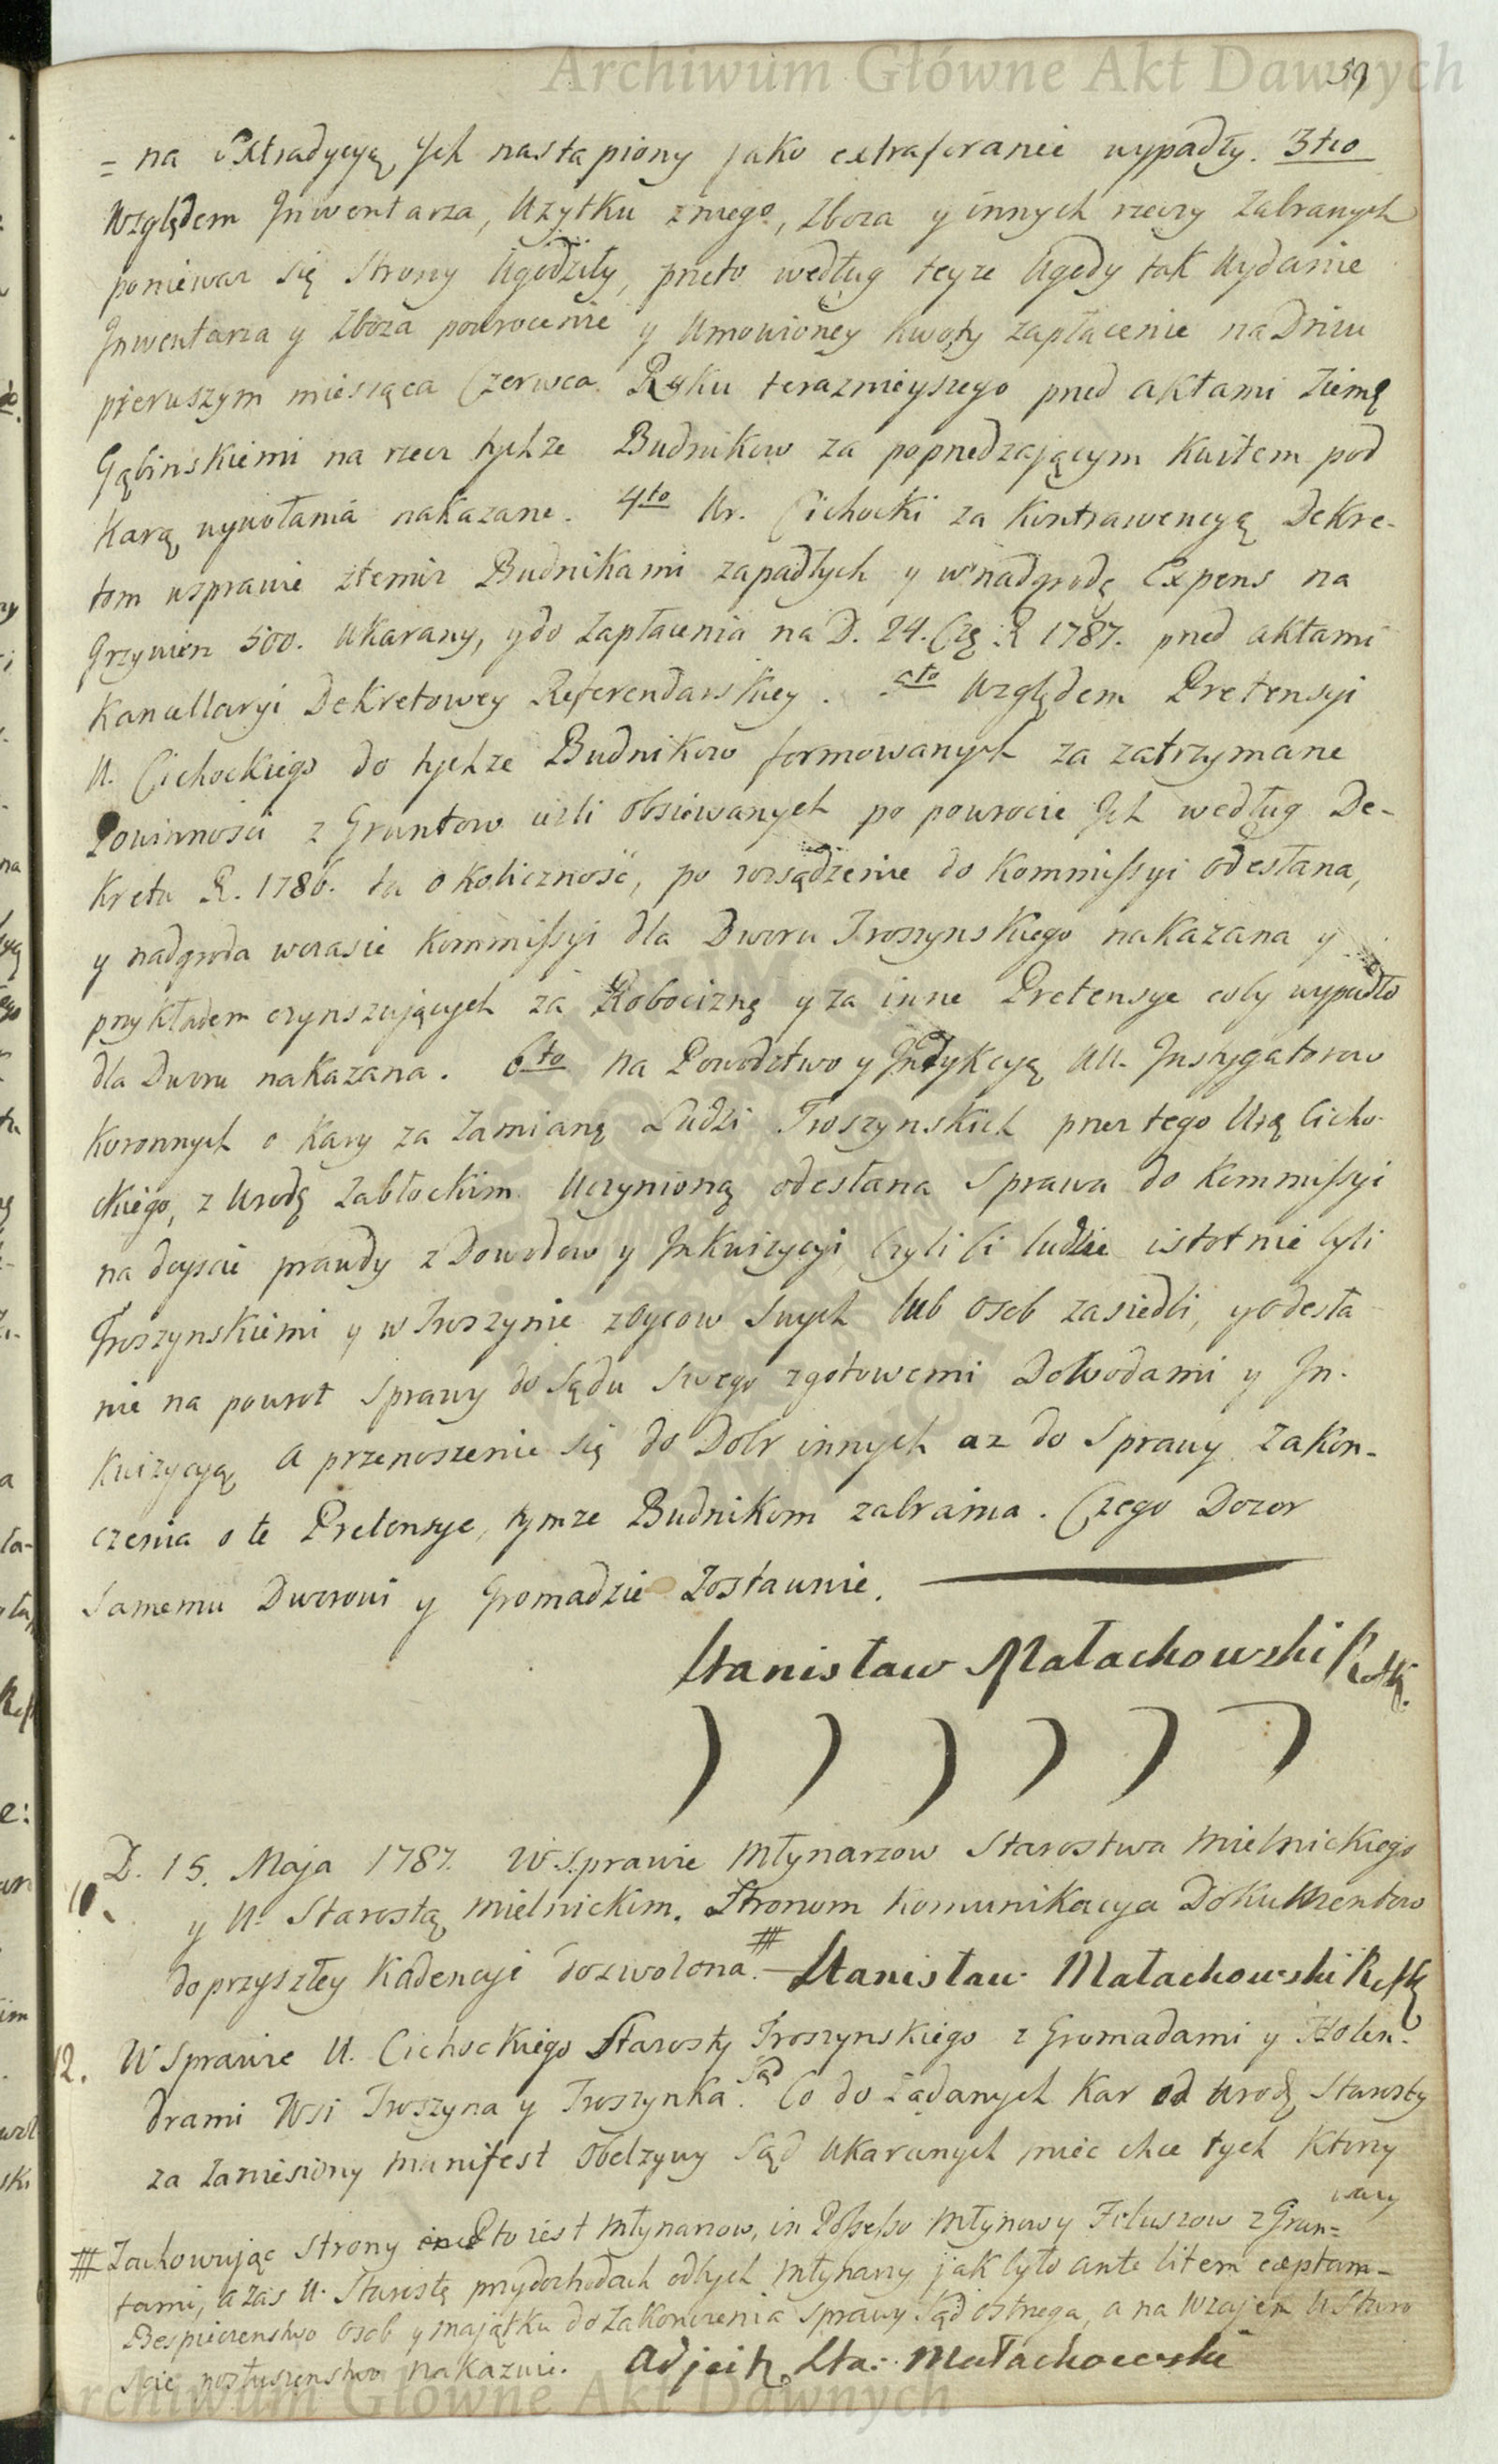 Archiwum Główne Akt Dawnych
59
= na Extradycyą Ich nastąpiony jako extraferanie wypadły. 3tio
Względem Inwentarza, Użytku zniego, Zboza y innych rzeczy Zabranych
poniewaz się Strony Ugodziły, przeto według teyze Ugody tak Wydanie
Inwentarza y Zboza powrocenie y Umowioney kwoty zapłacenie na Dniu
pierwszym miesiąca Czerwca Roku terazmieyszego przed aktami Ziemę
Gąbinskiemi na rzecz tychze Budnikow za poprzedzającym kwitem pod
Karą wywołania nakazane. 4to Ur. Cichocki za Kontrawencyą Dekre-
tom wsprawie ztemiz Budnikami zapadłych y w nadgrodę Expens na
Grzywien 500. Ukarany, y do Zapłacenia na D. 24. Czę R 1787. przed aktami
Kancellaryi Dekretowey Referendarskiey. 5to Względem Pretensyi
U. Cichockiego do tychze Budnikow formowanych za zatrzymane
Powinnosci z Gruntow iezli obsiewanych po powrocie Ich według De-
kretu R. 1786. ta okoliczność, po rozsądzenie do Kommissyi odesłana,
y nadgroda wczasie Kommissyi dla Dworu Troszynskiego nakazana y
przykładem czynszujących za Robociznę y za inne Pretensye coby wypadło
dla Dworu nakazana. 6to na Powodztwo y Indykcyą UU. Instygatorow
Koronnych o Kary za Zamianę Ludzi Troszynskich przez tego Urę Cicho-
ckiego, z Urodę Zabłockim Uczynioną odesłana Sprawa do Kommissyi
na doyscie prawdy z Dowodow y Inkwizycyi, Czyli Ci ludzie istotnie byli
Troszynskiemi y w Troszynie z Oycow Swych lub osob zasiedli, y odesła
nie na powrot Sprawy do Sądu Swego zgotowemi Dowodami y In-
kwizycyą A przenoszenie się do Dobr innych az do Sprawy Zakon-
czenia o te Pretensye, tymze Budnikom zabrania. Czego Dozor
Samemu Dworowi y Gromadzie Zostawuie.
Stanisław Małachowski R.
D. 15. Maja 1787. W Sprawie Młynarzow Starostwa Mielnickiego
10. y U. Starostą Mielnickim. Stronom Komunikacya Dokumentow
do przyszłey Kadencyi dozwolona. # Stanisław Małachowski
12. W Sprawie U. Cichockiego Starosty Troszynskiego z Gromadami y Holen-
drami Wsi Troszyna y Troszynka Sąd Co do Ządanych Kar od Urodz Starosty
za Zaniesiony Manifest Obelzywy Sąd Ukaranych miec chce tych Ktorzy
# Zachowując Strony to iest Młynarzow, in Possesso Młynow y Foluszow z Grun-
tami, a zas U. Starostę przy dochodach odtych Młynarzy jak było ante litem cæptam-
Bespieczenstwo Osob y majątku do Zakonczenia Sprawy Sąd ostrzega, a na Wzajem U Staro
scie posłuszenstwo nakazuie. Adjecit Sta: Małachowski
Archiwum Główne Akt Dawnych